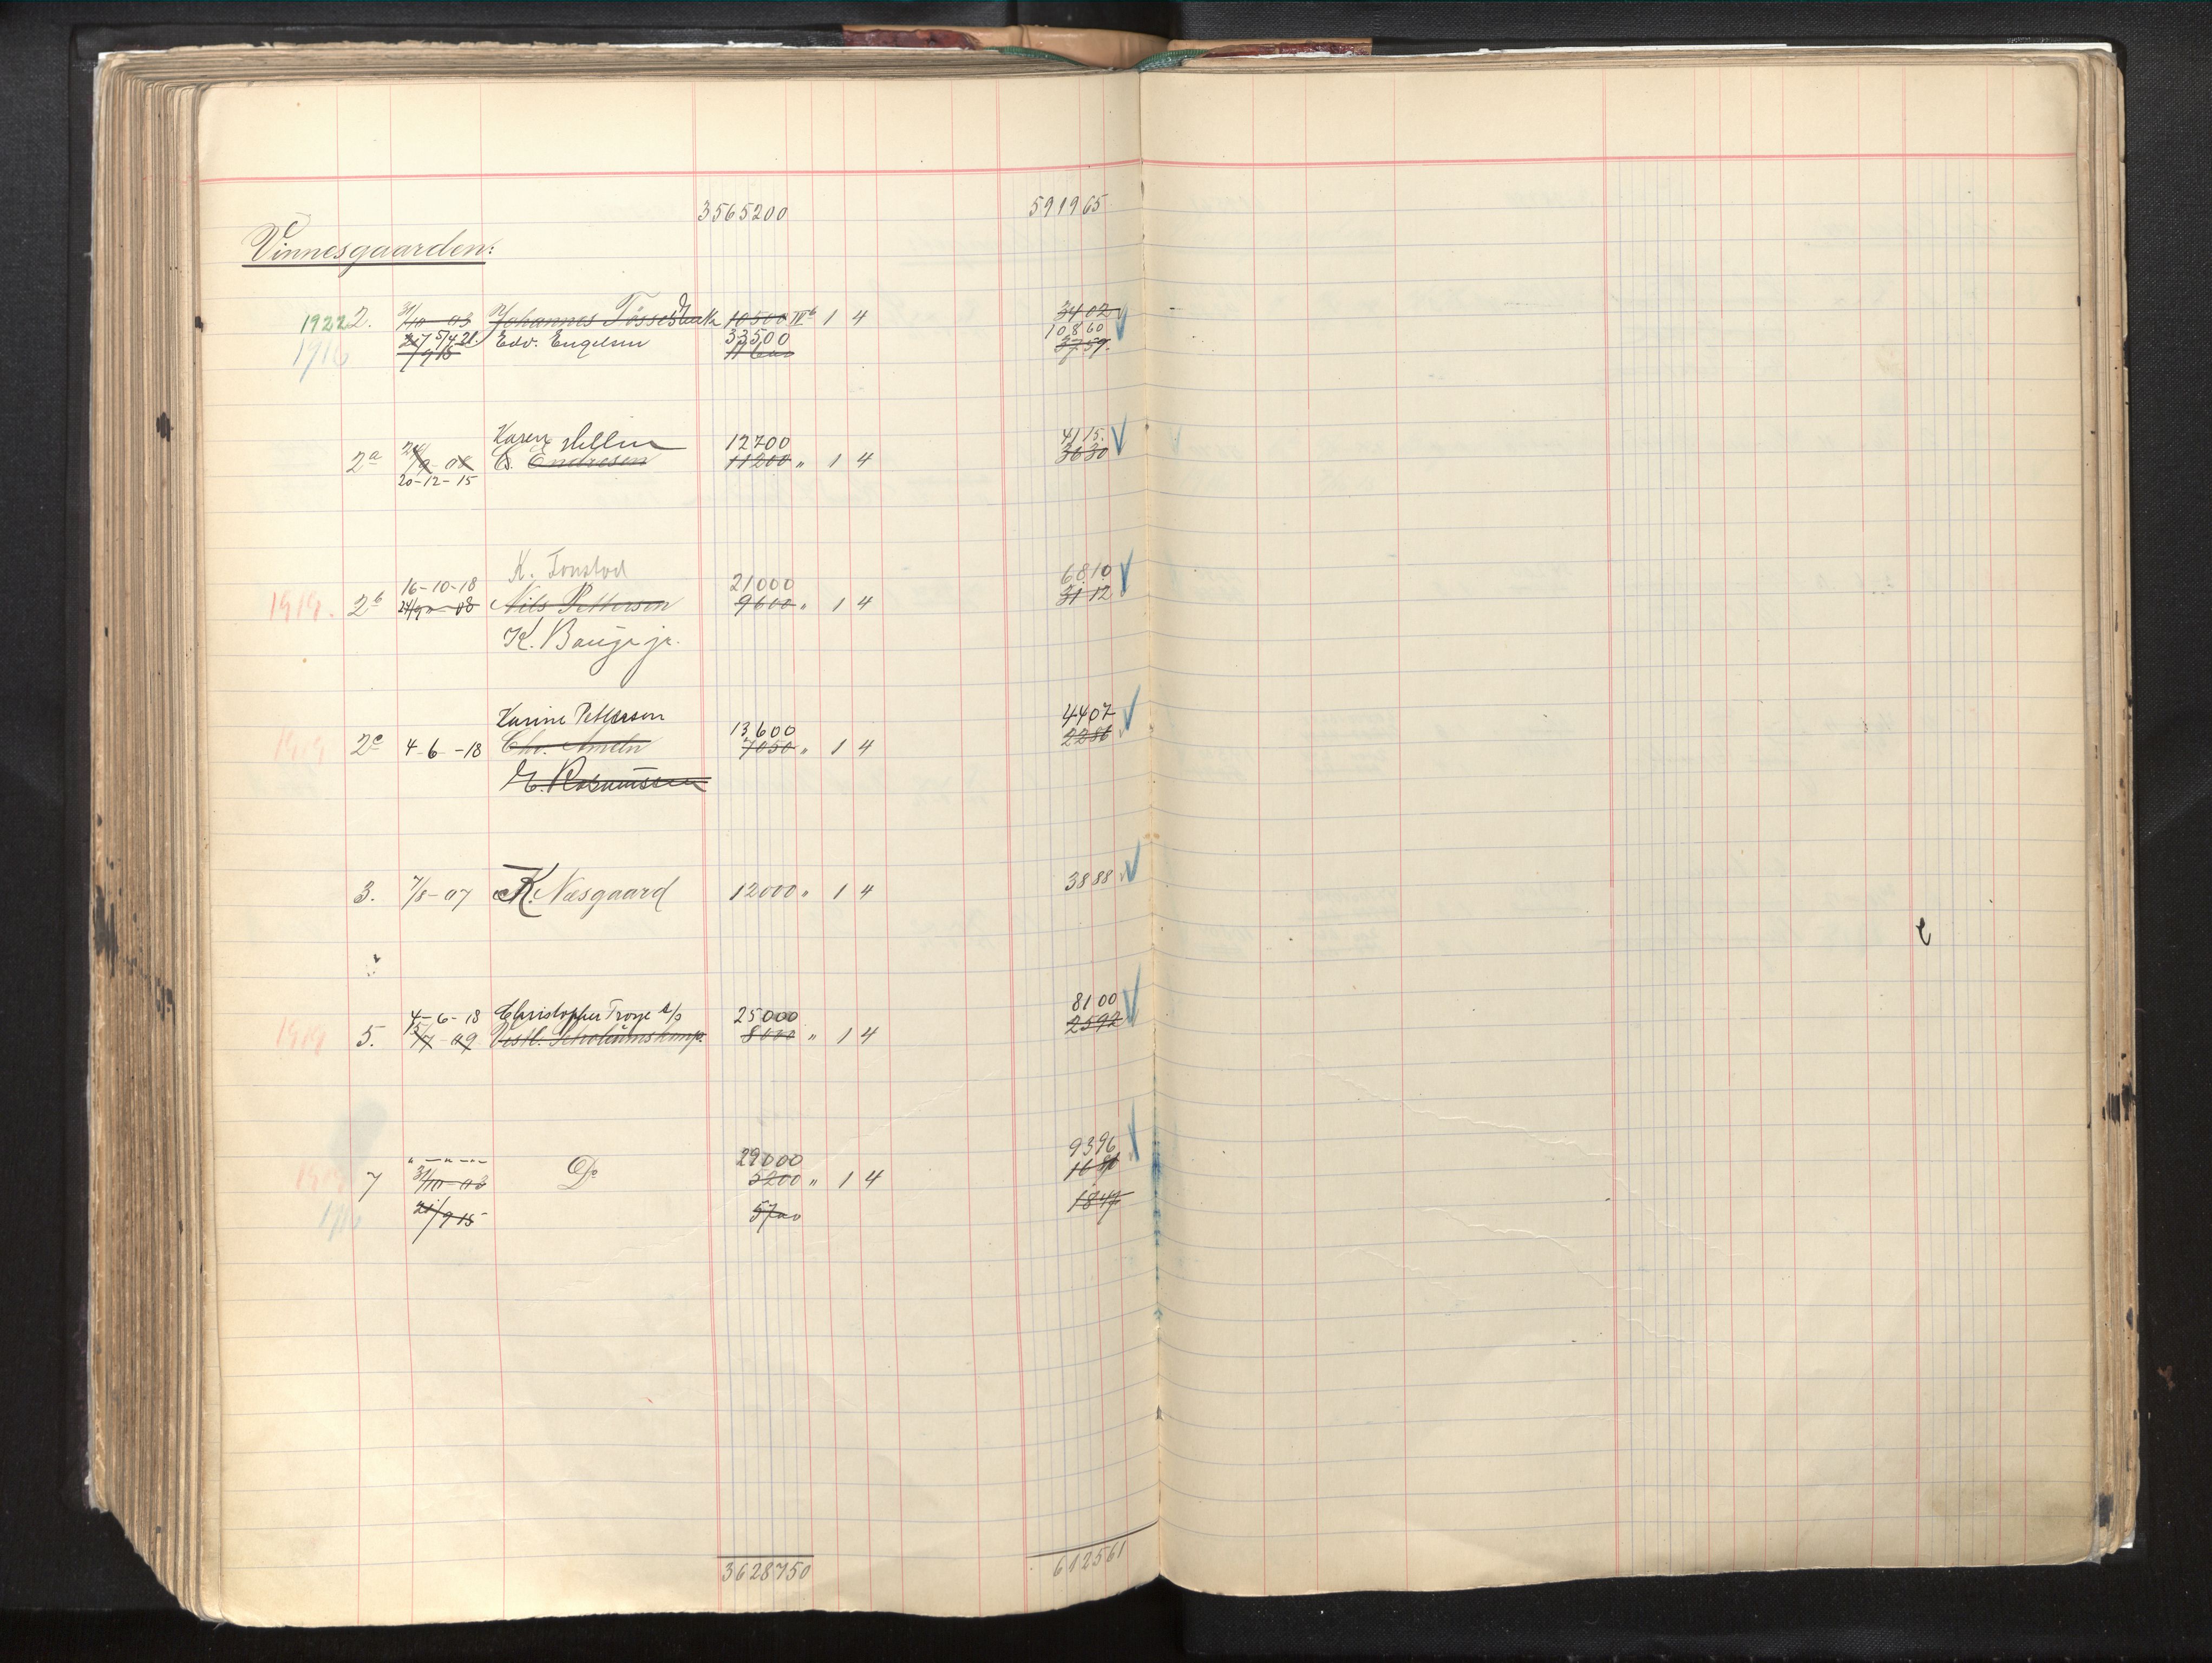 3565200 591965
Vinnesgaarden:
1922 2. 31/10-03 Johannes 10500 IVb 1 4 3402
5/4 21. Edv. Engelsen 33500 10860
1916 11600 3759.
Karen 12700 4115.
2a 24/9-08 Endresen 11200 " 1 4 3630
20-12-15
K. Tonstad
16-10-18 21000 6810
1919. 2b 24/9-08 Nils Pettersen 9600 " 1 4 3112
K. Bauge jr.
Karine Pettersen 13600 4407
1919 2c 4-6-18 Chr. Ameln 7050 " 1 4 2286
E. Rasmussen
3. 7/8-07 K. Næsgaard 12000 " 1 4 3888
4-6-18 Christopher Troye A/S 25000 8100
1919 5. 15/7-09 Vestl. 8000 " 1 4 2592
" — " — " — 29000 9396
1919 7 31/10-03 Do 5200 " 1 4
1916 21/9 15 5700 1847
3628750 612561